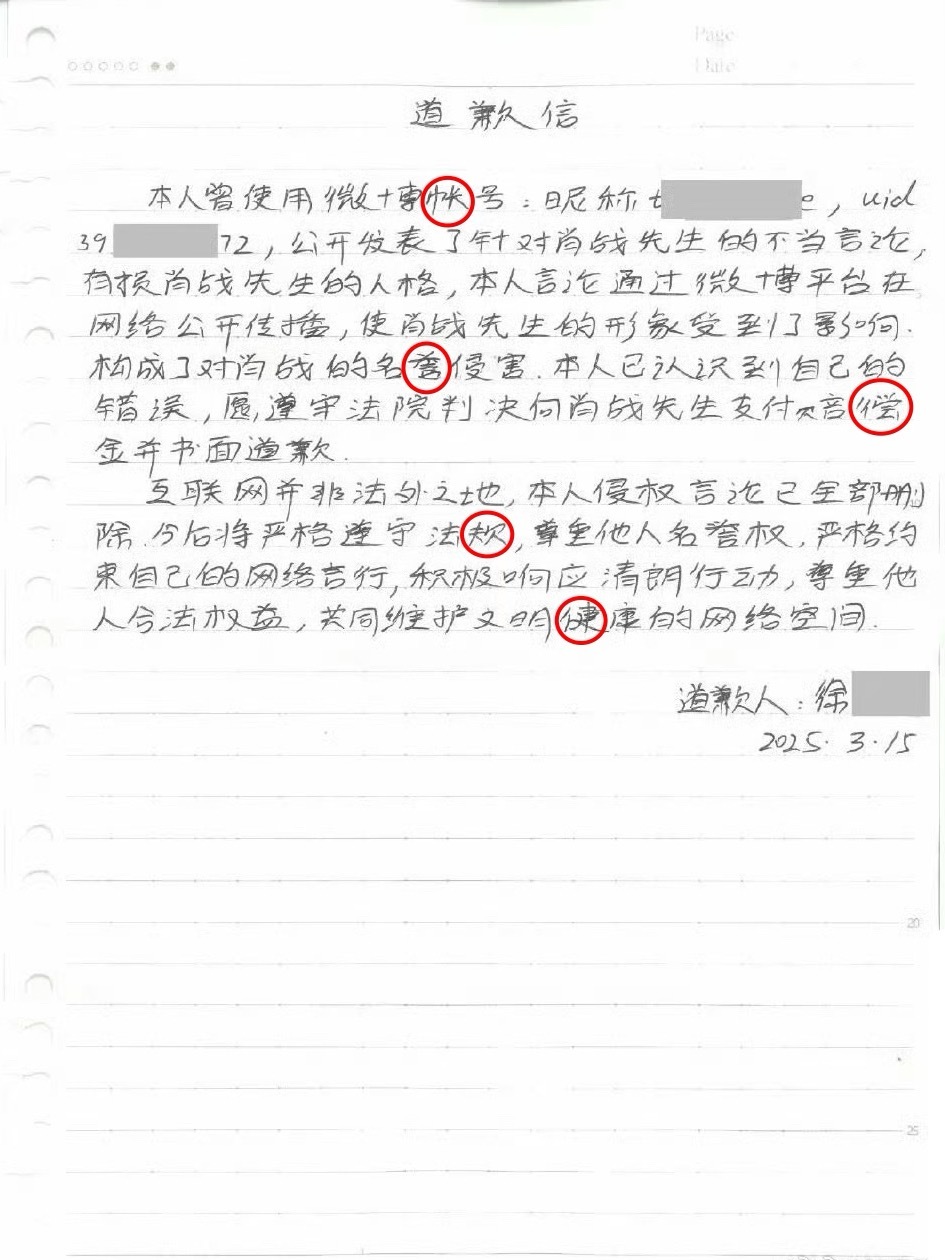 Page
Date
道歉信
本人曾使用微博帐号：昵称t e，uid
39 72，公开发表了针对肖战先生的不当言论，
有损肖战先生的人格，本人言论通过微博平台在
网络公开传播，使肖战先生的形象受到了影响.
构成了对肖战的名誉侵害.本人已认识到自己的
错误，愿遵守法院判决向肖战先生支付赔偿
金并书面道歉.
互联网并非法外之地，本人侵权言论已全部删
除.今后将严格遵守法规，尊重他人名誉权，严格约
束自己的网络言行，积极响应清朗行动，尊重他
人合法权益，共同维护文明健康的网络空间.
道歉人：徐
2025.3.15
20
25